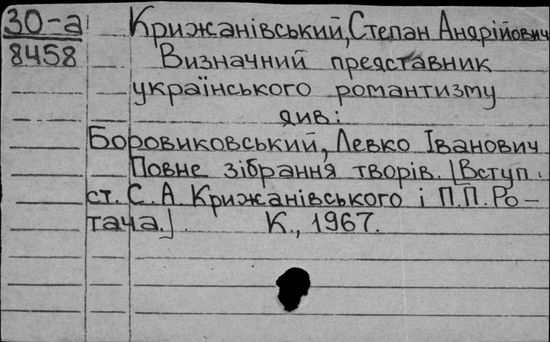 30-а Крижанівський, Степан Андрійович
8458 Визначний представник
українського романтизму
див:
Боровиковський, Левко Іванович
Повне зібрання творів. [Вступ.
ст. С. А Крижанівського і П.П. Ро-
тача.] К., 1967.